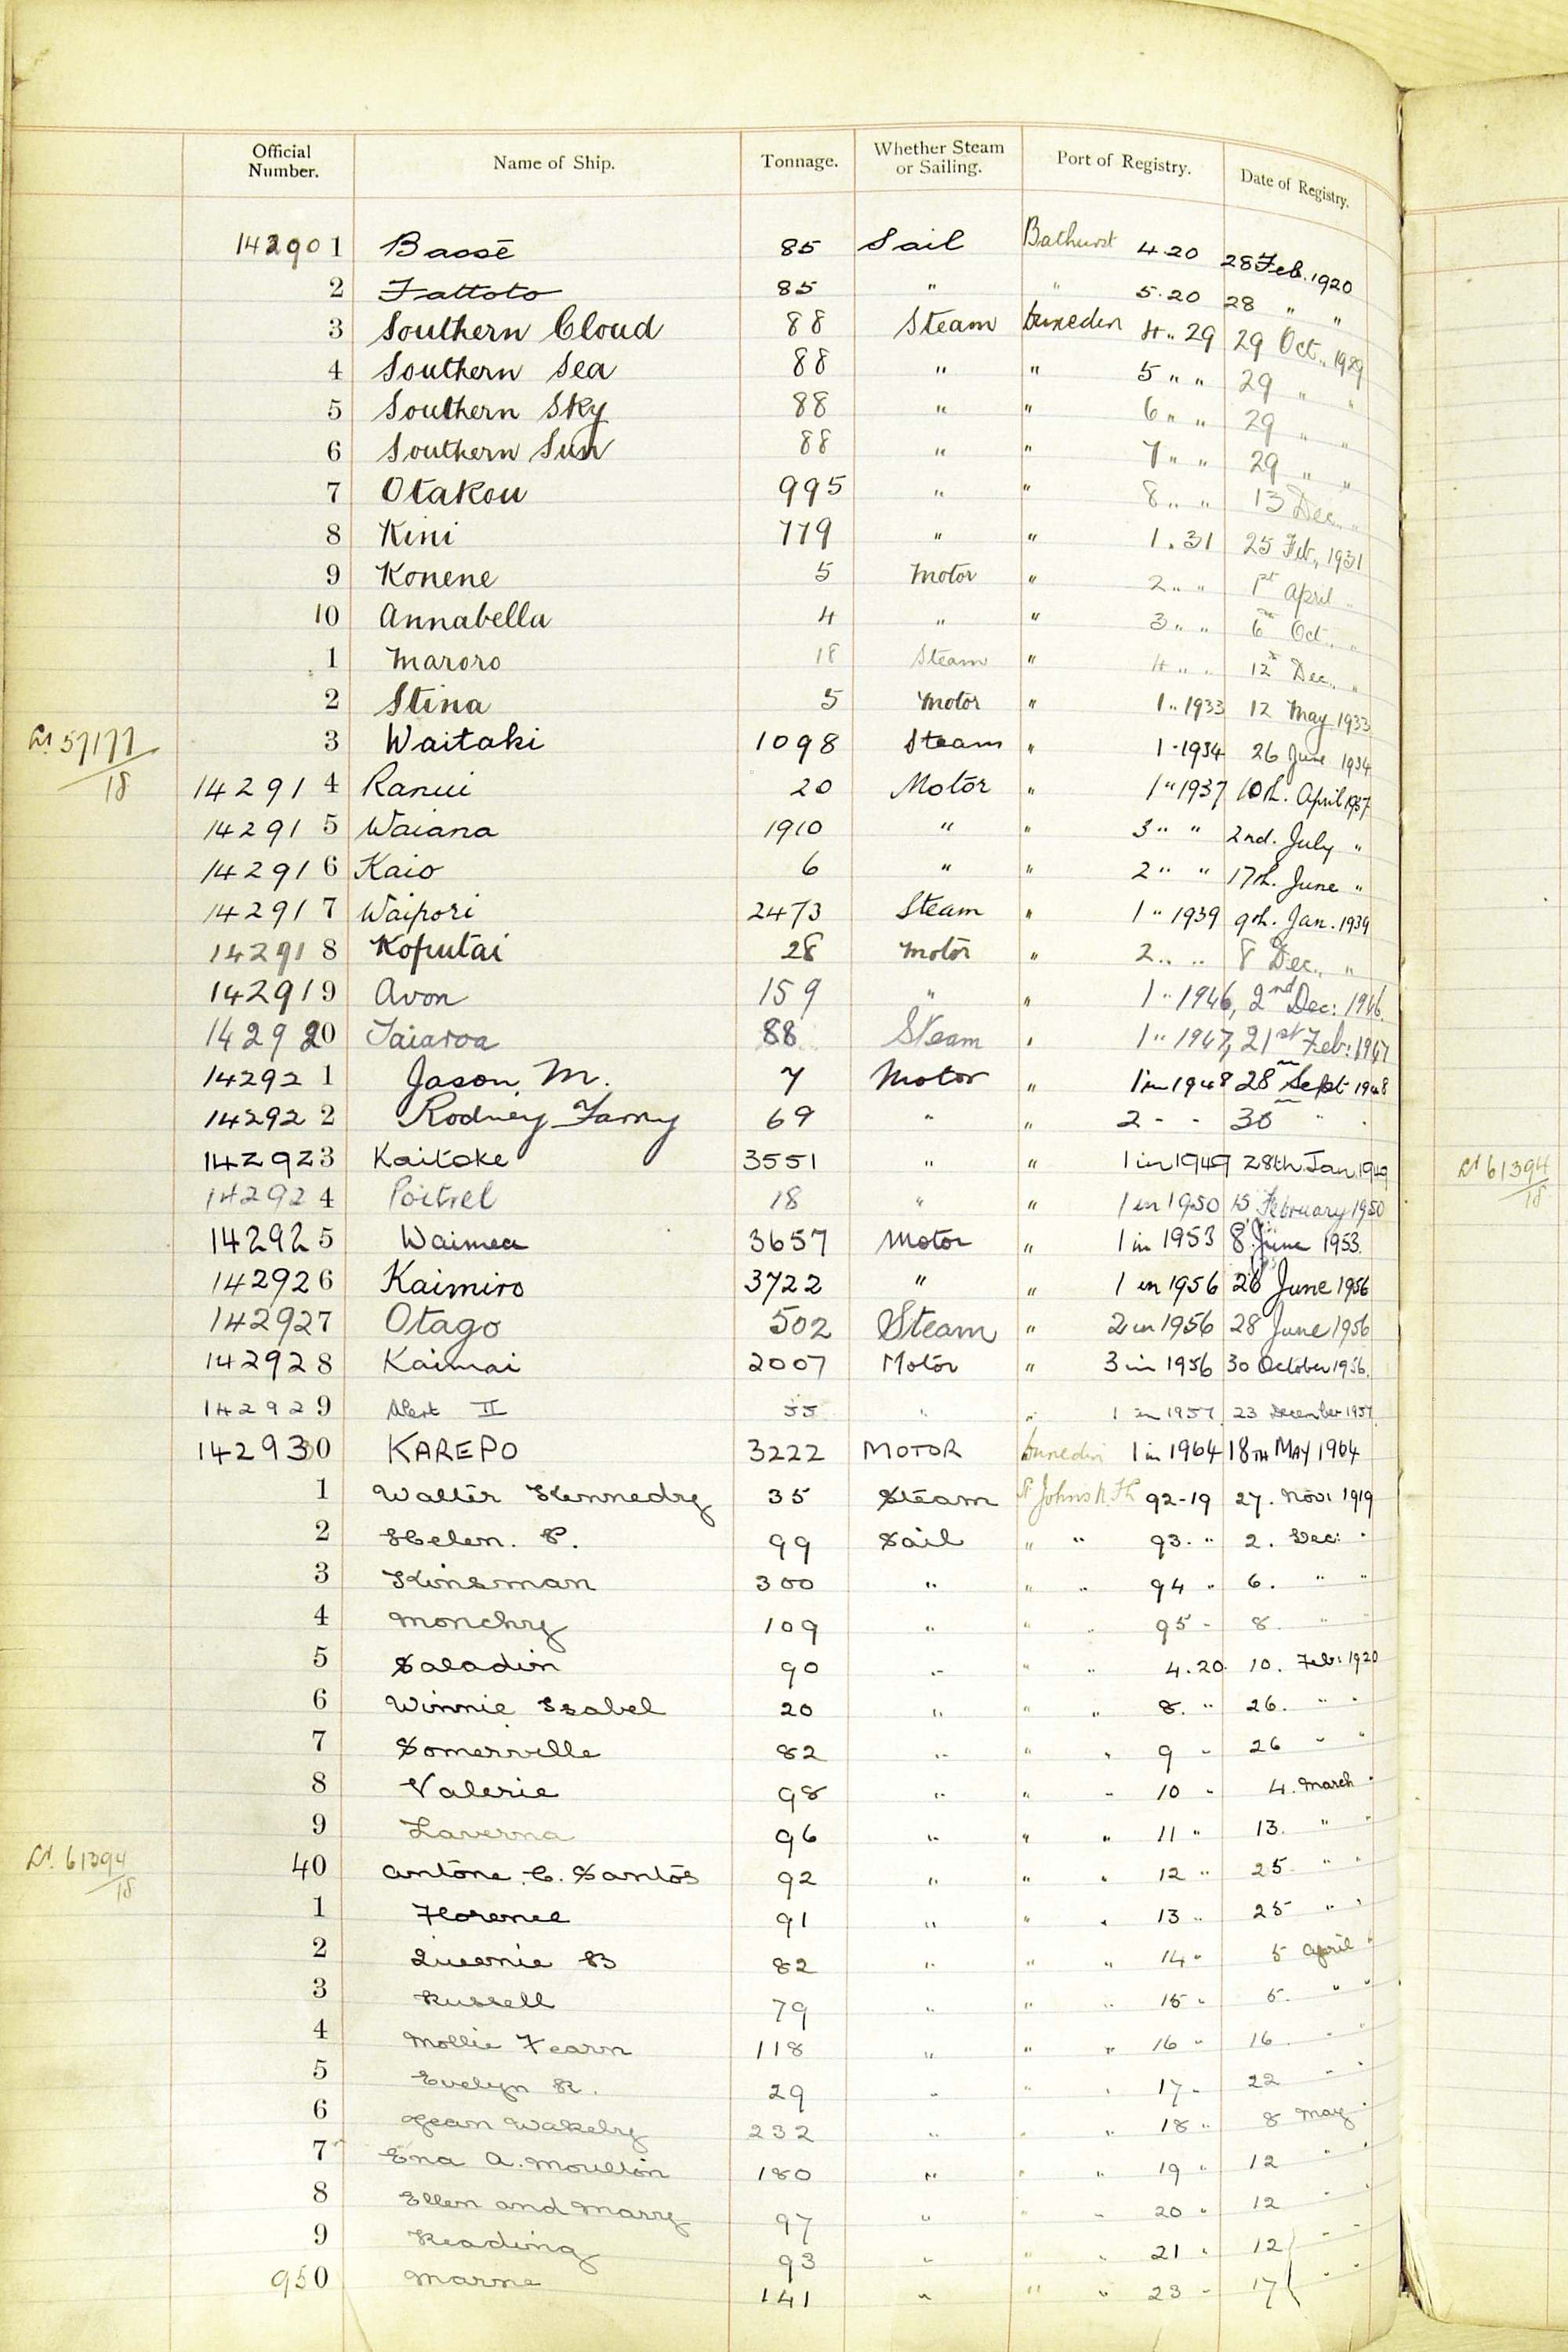 Official Number. Name of Ship. Tonnage. Whether Steam or Sailing. Port of Registry. Date of Registry.
142901 Bassē 85 Sail Bathurst 4.20 28 Feb. 1920
2 Fattoto 85 " " 5.20 28 " "
3 Southern Cloud 88 Steam Dunedin 4 .. 29 29 Oct., 1929
4 Southern Sea 88 " " 5 " " 29 " "
5 Southern Sky 88 " " 6 " " 29 " "
6 Southern Sun 88 " " 7 " " 29 " "
7 Otakou 995 " " 8 " " 13 Dec., "
8 Kini 779 " " 1 . 31 25 Feb., 1931
9 Konene 5 Motor " 2 " " 1st April "
10 Annabella 4 " " 3 " " 6th Oct., "
1 Maroro 18 Steam " 4 " " 12th Dec., "
2 Stina 5 Motor " 1 .. 1933 12 May 1933
3 Waitaki 1098 Steam " 1 - 1934 26 June 1934
Lr 57177/18
142914 Ranui 20 Motor " 1 " 1937 10th. April 1937
142915 Waiana 1910 " " 3 " " 2nd. July "
142916 Kaio 6 " " 2 " " 17th. June "
142917 Waipori 2473 Steam " 1 " 1939 9th. Jan. 1939
142918 Koputai 28 Motor " 2 " " 8 Dec., "
142919 Avon 159 " " 1 " 1946, 2nd Dec: 1946.
142920 Taiaroa 88 Steam " 1 " 1947, 21st Feb: 1947
142921 Jason M. 7 Motor " 1 in 1948 28th Sept 1948
142922 Rodney 69 " " 2 - - 30th " "
142923 Kaitoke 3551 " " 1 in 1949 28th Jan. 1949
Lr 61394/18
142924 Poitrel 18 " " 1 in 1950 15 February 1950
142925 Waimea 3657 Motor " 1 in 1953 8 June 1953.
142926 Kaimiro 3722 " " 1 in 1956 26 June 1956
142927 Otago 502 Steam " 2 in 1956 28 June 1956
142928 Kaimai 2007 Motor " 3 in 1956 30 October 1956.
142929 Alert II 55 " " 1 in 1957 23 December 1957
142930 KAREPO 3222 MOTOR Dunedin 1 in 1964 18TH MAY 1964
1 Walter Kennedy 35 Steam St Johns N.Fd 92-19 27. Nov: 1919
2 Helen. P. 99 Sail " " 93. " 2. Dec: "
3 Kinsman 300 " " " 94 " 6. " "
4 Monchy 109 " " " 95 - 8. " "
5 Saladin 90 " " " 4.20. 10. Feb: 1920
6 Winnie Isabel 20 " " " 8. " 26. " "
7 Somerville 82 " " " 9 " 26 " "
8 Valerie 98 " " " 10 " 4. March "
9 Laverna 96 " " " 11 " 13. " "
Lr. 61394/18
40 Antone. C. Santos 92 " " " 12 " 25. " "
1 Florence 91 " " " 13 " 25 " "
2 Queenie B 82 " " " 14 " 5 April "
3 Russell 79 " " " 15 " 5. " "
4 Mollie Fearn 118 " " " 16 " 16. " "
5 Evelyn R. 29 " " " 17 " 22 " "
6 Jean Wakely 232 " " " 18 " 8 May "
7 Ena A. Moulton 180 " " " 19 " 12 " "
8 Ellen and Mary 97 " " " 20 " 12 " "
9 Reading 93 " " " 21 " 12 " "
950 Marne 141 " " " 23 " 17 " "